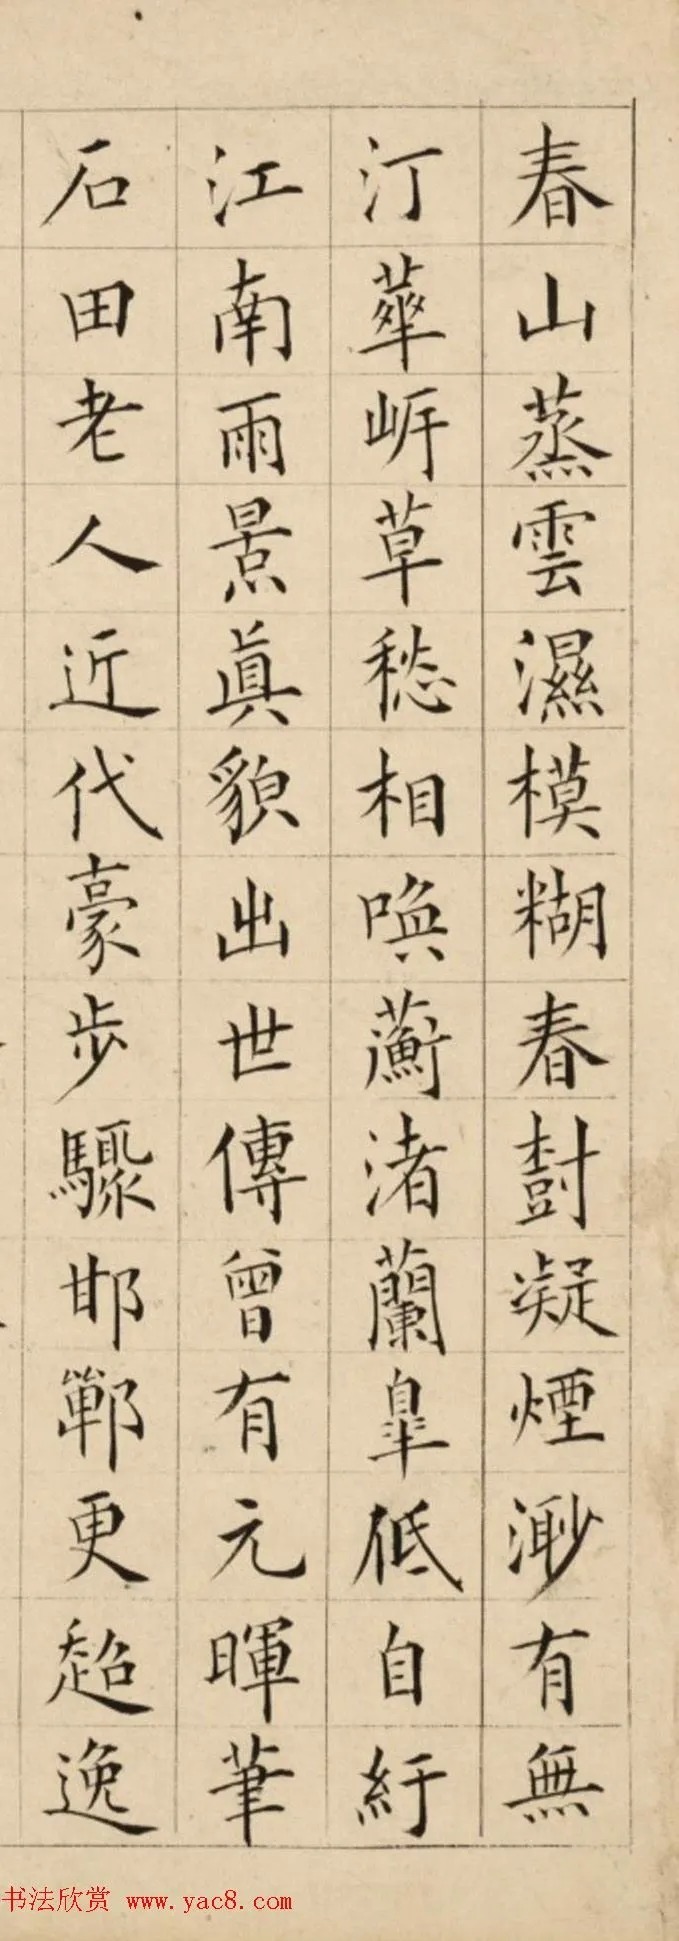 春山蒸雲濕模糊春封凝煙渺有無
汀蕐岍草愁相喚蘅渚蘭皐低自紆
江南雨景眞貌出世傳曾有元暉筆
石田老人近代豪步驟邯鄲更超逸
书法欣赏 www.yac8.com